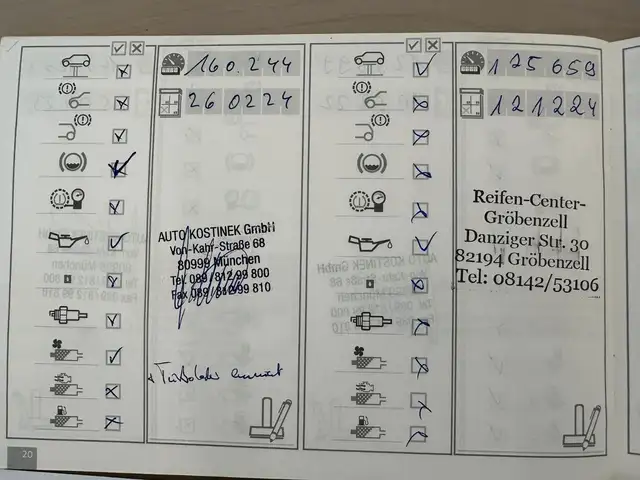 160.244
260224
AUTO KOSTINEK GmbH
Von-Kahr-Straße 68
80999 München
Tel. 089 / 812 99 800
Fax 089 / 812 99 810
20
175659
121224
Reifen-Center-
Gröbenzell
Danziger Str. 30
82194 Gröbenzell
Tel: 08142/53106